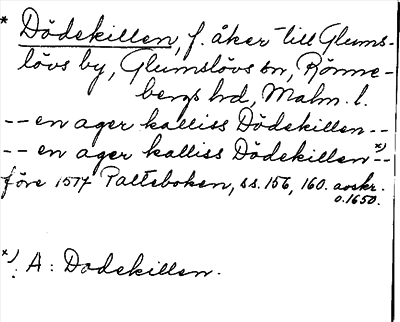 * Dödekillen, f. åker till Glums-
lövs by, Glumslövs sn, Rönne-
bergs hd, Malm. l.
-- en ager kalliss Dödekillen --
-- en ager kalliss Dödekillen *) --
före 1577 Palteboken, ss. 156, 160. avskr.
o. 1650.
*) A: Dodekillen.